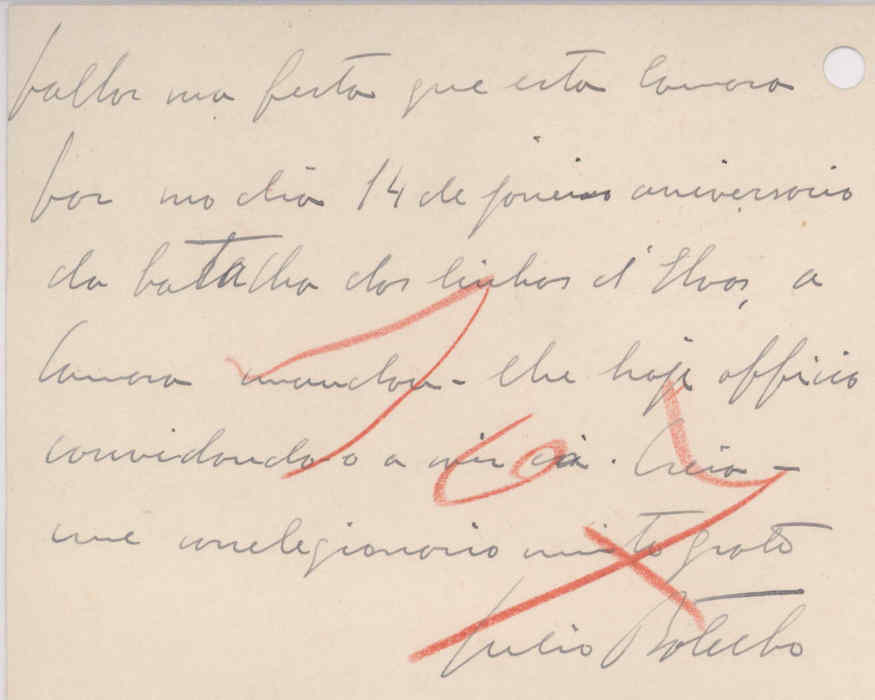 fallar na festa que esta Camara
faz no dia 14 de janeiro aniversario
da batalha das linhas d'Elvas, a
Camara mandou-lhe hoje officio
convidando-o a vir cá. Creia-
me correlegionario muito grato
Julio Botelho
767